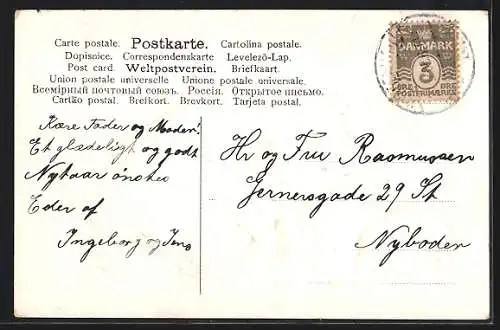 Carte postale. Postkarte. Cartolina postale.
Dopisnice. Correspondenzkarte Levelező-Lap.
Post card. Weltpostverein. Briefkaart.
Union postale universelle Unione postale universale.
Всемірный почтовый союзъ. Россія. Открытое письмо.
Cartão postal. Brefkort. Brevkort. Tarjeta postal.
DANMARK
3
ØRE ØRE
POSTFRIM
Kære Fader og Moder!
Et glædeligt og godt
Nytaar ønskes
Eder af
Ingeborg og Jens
Hr og Fru Rasmussen
Gernersgade 29 St
Nyboder